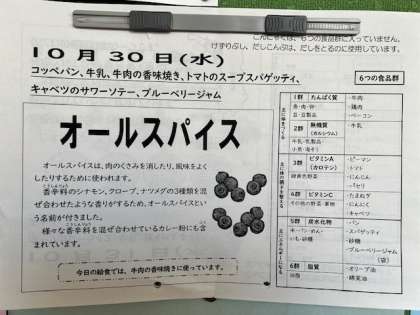 こんにゃくは、もつの食品群に入っていません。
けずりぶし、だしこんぶは、だしをとるのに使用しています。
10月30日(水)
コッペパン、牛乳、牛肉の香味焼き、トマトのスープスパゲッティ、
キャベツのサワーソテー、ブルーベリージャム
6つの食品群
オールスパイス
オールスパイスは、肉のくさみを消したり、風味をよく
したりするために使われます。
香辛料のシナモン、クローブ、ナツメグの3種類を混
ぜ合わせたような香りがするため、オールスパイスとい
う名前が付きました。
様々な香辛料を混ぜ合わせているカレー粉にも含
まれています。
今日の給食では、牛肉の香味焼きに使っています。
1群 たんぱく質
魚・肉・卵・
豆・豆製品
・牛肉
・鶏肉
・ベーコン
2群 無機質
(カルシウム)
牛乳・乳製品・
小魚・海そう
・牛乳
3群 ビタミンA
(カロテン)
緑黄色野菜
・ピーマン
・トマト
・にんじん
・パセリ
4群 ビタミンC
その他の野菜・果物
・たまねぎ
・にんにく
・キャベツ
5群 炭水化物
米・パン・めん・
いも・砂糖
・パン
・スパゲッティ
・砂糖
・ブルーベリージャム
(袋)
6群 脂質
油脂
・オリーブ油
・綿実油